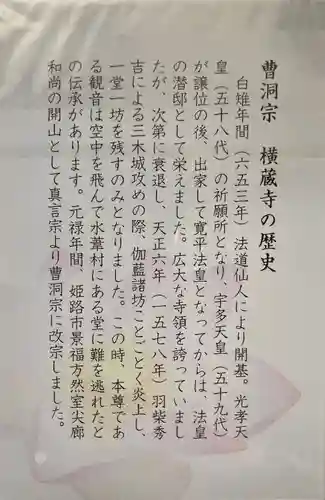 曹洞宗 横蔵寺の歴史
白雉年間（六五三年）法道仙人により開基。光孝天
皇（五十八代）の祈願所となり、宇多天皇（五十九代）
が譲位の後、出家して寛平法皇となってからは、法皇
の潜邸として栄えました。広大な寺領を誇っていまし
たが、次第に衰退し、天正六年（一五七八年）羽柴秀
吉による三木城攻めの際、伽藍諸坊ことごとく炎上し、
一堂一坊を残すのみとなりました。この時、本尊であ
る観音は空中を飛んで水葦村にある堂に難を逃れたと
の伝承があります。元禄年間、姫路市景福方然室尖廊
和尚の開山として真言宗より曹洞宗に改宗しました。